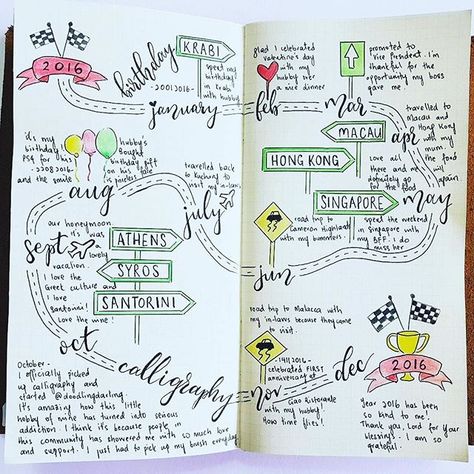 2016
birthday
KRABI
spent and
birthday
in KRABI
with hubby
-20012016-
january
glad I celebrated
valentine's day
with my
hubby over
a nice dinner
feb
promoted to
'Vice President'. I'm
thankful for the
opportunity my boss
gave me.
mar
travelled to
Macau and
Hong Kong
with my
mum.
the food
will
again
MACAU
HONG KONG
love all
there and we
definitely go
for the food
apr
SINGAPORE
spend the weekend
in Singapore with
my BFF. I do
miss her
may
road trip to
Cameron Highlands
with my
jun
travelled back
to Kuching
visit my in-laws
july
it's my
birthday
PS4 for this
-22082016-
and the smile
hubby's
Bought
birthday gift
on his
face
aug
our honeymoon
it's was
lovely
vacation.
I love the
Greek culture and
I love
Santorini!
Love the wine!
sept
ATHENS
SYROS
SANTORINI
oct
October-
I officially picked
up calligraphy and
started @doodlingdarling.
It's amazing how this little
hobby of mine has turned into serious
addiction. I think it's because people in
this community has showered me with so much love
and support. I just had to pick up my brush everyday
calligraphy
road trip to Malacca with
my in-laws because they came
to visit.
nov
-1411 2016-
celebrated FIRST
anniversary at
Gao Ristorante
with my hubby!
How time flies!
dec
2016
Year 2016 has been
so kind to me!
Thank you, Lord for Your
blessings. I am so
grateful.